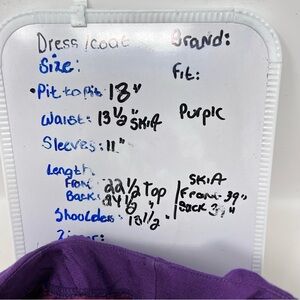 Dress/coat Brand:
Size: Fit:
• Pit to Pit 18"
Waist: 13 1/2" SKirt Purple
Sleeves: 11"
Length SKirt
Front: 22 1/2 Top Front 39"
Back: 24 1/2 " Back 39"
Shoulders 15 1/2"